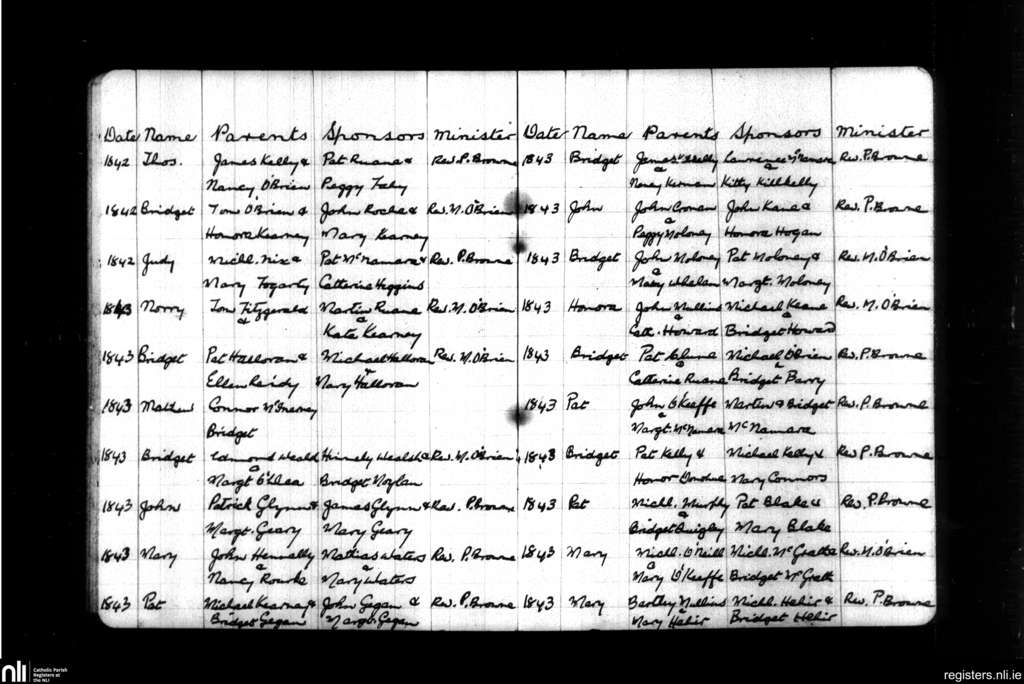 Date Name Parents Sponsors Minister
1842 Thos. James Kelly & Pat Ruane & Rev. P. Browne
Nancy O'Brien Peggy Fahy
1842 Bridget Tom O'Brien & John Roche & Rev. M. O'Brien
Honora Kearney Mary Kearney
1842 Judy Michl. Nix & Pat McNamara & Rev. P. Browne
Mary Fogarty Catherine Higgins
1843 Norry Tom Fitzgerald Martin Ruane Rev. M. O'Brien
& &
Kate Kearney
1843 Bridget Pat Halloran & Michael Halloran Rev. M. O'Brien
Ellen Reidy Mary Halloran
1843 Mathew Connor McInerney
Bridget
1843 Bridget Edmond & Rev. M. O'Brien
Margt O'Dea Bridget
1843 John Patrick Glynn & James Glynn & Rev. P. Browne
Margt. Geary Mary Geary
1843 Mary John Hennally Mathias Waters Rev. P. Browne
& &
Nancy Rourke Mary Waters
1843 Pat Michael Kearney & John Gegan & Rev. P. Browne
Bridget Gegan Margt. Gegan
Date Name Parents Sponsors Minister
1843 Bridget James Lawrence McNamara Rev. P. Browne
& &
Kitty Killkelly
1843 John John Cronan John Kane & Rev. P. Browne
&
Peggy Moloney Honora Hogan
1843 Bridget John Moloney Pat Moloney & Rev. M. O'Brien
&
Mary Whelan Margt. Moloney
1843 Honora John Mullins Michael Keane Rev. M. O'Brien
&
Cath. Howard Bridget Howard
1843 Bridget Pat Clune Michael O'Brien Rev. P. Browne
& &
Catherine Ruane Bridget Barry
1843 Pat John O'Keeffe Martin & Bridget Rev. P. Browne
&
Margt McNamara McNamara
1843 Bridget Pat Kelly & Michael Kelly & Rev P. Browne
Honor Mary Connors
1843 Pat Michl. Murphy Pat Blake & Rev. P. Browne
&
Bridget Quigley Mary Blake
1843 Mary Michl. O'Neill Michl. McGrath & Rev. M. O'Brien
&
Mary O'Keeffe Bridget McGrath
1843 Mary Bartley Mullins Michl. Hehir & Rev. P. Browne
&
Mary Hehir Bridget Hehir
nli
Catholic Parish
Registers at
the NLI
registers.nli.ie